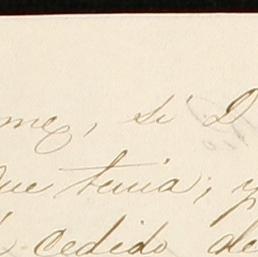 me, si D
que tenia; y
cedido de